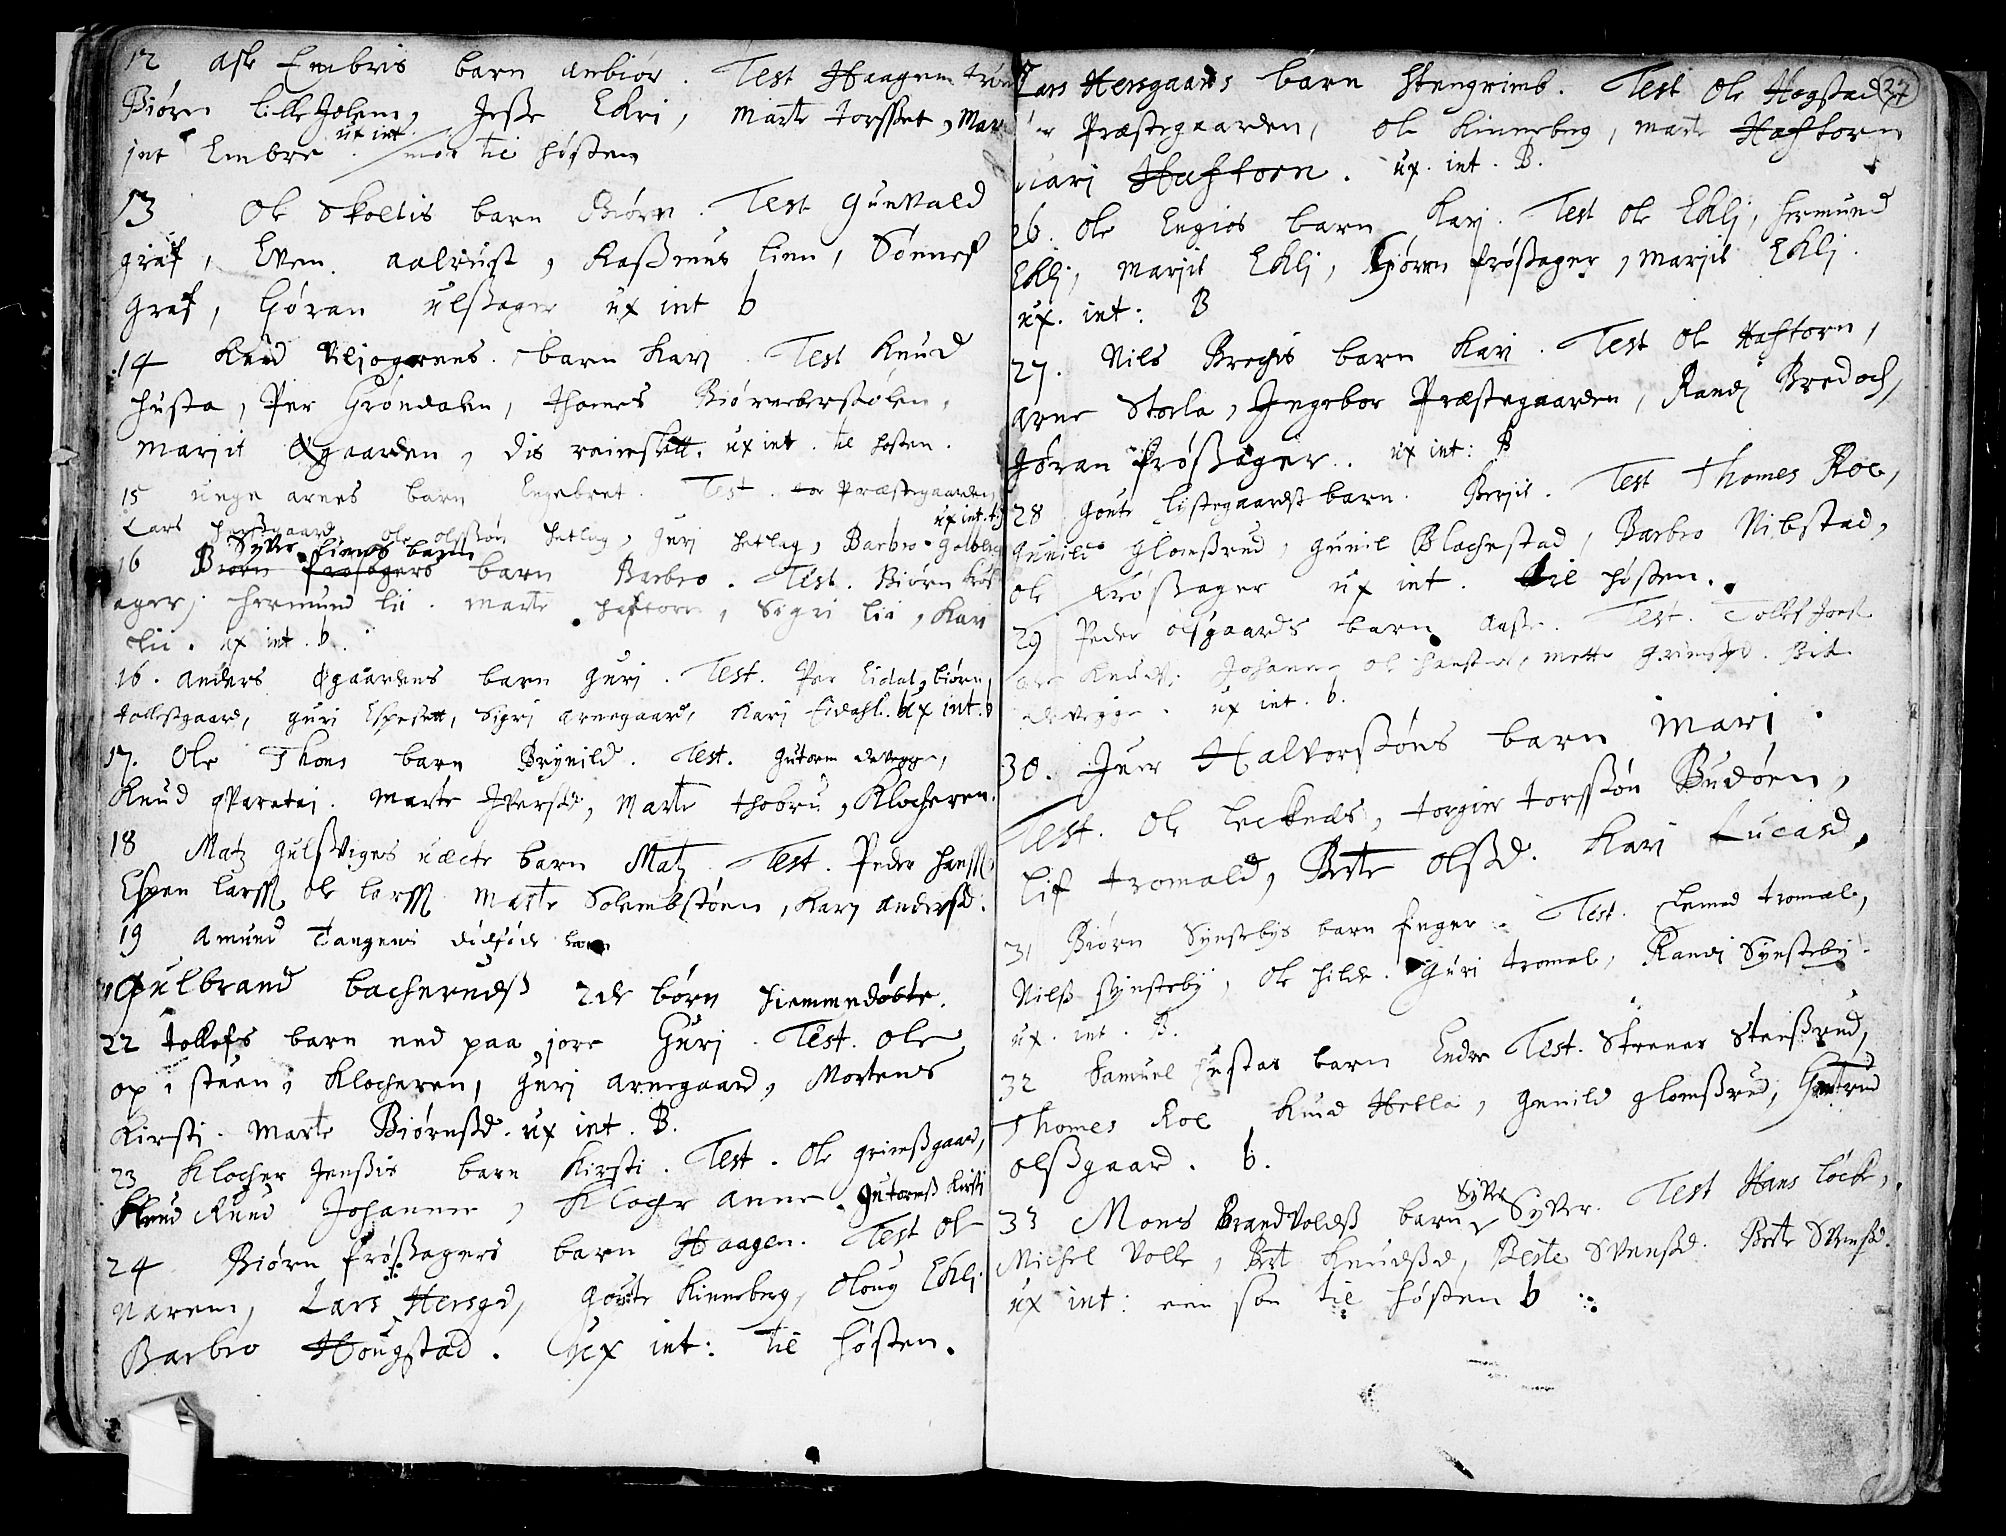 12 Ask Embris barn Anbiør. Test Haagen
Biørn lille Jolem, Jesse Ekri, Marte Torsset, Mar
int Embre ux int. til høsten
13 Ole Skoltis barn Biørn. Test Gunvald
graf, Even aalrust, Rasmus Lien, Sønnef
Graf, Gøran ulsager ux int b
14 Knud Viljogrens barn Kari. Test Knud
husta, Per Grøndalen, Thomes Biørneberstølen,
Marjit Øgaarden, Dis ux int. til høsten.
15 unge arnes barn Engebret. Test. Præstegaarden,
ux int. til
Lars Hersgaard, ole olssøn Hetleg, Guri Hetleg, Barbro
Syver Liens barn
16 Biørn Frøsagers barn Barbro. Test. Biørn Frøs
ager, Hermund Lii. Marte Haftorn, Sigri Lii, Kari
Lii. ux int. b.
16. Anders Øgaardens barn Guri. Test. Per Eidal, Biørn
tollefsgaard, Guri Espesett, Sigri Arnegaard, Kari Eidahl. ux int. b
17. Ole Thons barn Brynild. Test. Guttorm
Knud Marte Iversd, Marte Thobru, Klocheren.
18 Matz Gulsvigs uæcte barn Matz. Test. Peder Hanss
Espen Larss ole Larss Marte Solembstøen, Kari Andersd.
19 Amund Tangens dødføde barn
Gulbrand bacheruds 2de børn hiemmedøbte.
22 Tollefs barn ned paa jore Guri. Test. Ole
op i stuen, Klocheren, Guri Arnegaard, Mortens
Kirsti. Marte Biørnsd. ux int. B.
23 Klocher Jensis barn Kirsti. Test. Ole Grimsgaard,
Knud Ruud Johanne, Klocher Anne. Gutorms Kirsti
24 Biørn Frøsagers barn Haagen. Test Ole
Narem, Lars Hersgd, Goute Kinneberg, Oloug Ekli
Barbro Hougstad. ux int: til høsten.
27
Lars Hersgaards barn Stengrimb. Test Ole Hogstad
Præstegaarden, Ole Kinneberg, Marte Haftorn
Kari Haftorn. ux. int. B.
26. Ole Engios barn Kari. Test Ole Ekli, Hermund
Ekli, Marjit Ekli, Biørn Frøsager, Marjit Ekli.
ux. int: B
27. Nils Brochs barn Kari. Test Ole Haftorn,
Arne Storla, Ingebor Præstegaarden, Randi Bredoch,
Gøran Frøsager. ux int: B
28 Goute Listegaards barn Berjit. Test Thomes Roe,
Gunild Glomsrud, Gunil Blachestad, Barbro Nibstad,
Ole Frøsager ux int. til høsten.
29 Peder olsgaards barn Aase. Test. Tollef
Knud Johanne ole mette Grimsgd. Birte
ux int. b.
30. Iver Halvorsøns barn Mari.
Test. Ole Leckenes, Torgier Torssøn Budøen,
Lif Tromald, Birte Olsd. Kari Lucasd.
31 Biørn Synstebys barn Enger. Test. Tromal,
Nils Synsteby, Ole Hilde. Guri Tromal, Randi Synsteby.
ux. int. B.
32 Samuel Hustas barn Endre Test. Steener Steensrud,
Thomes Roe Knud Hetla, Gunild Glomsrud, Giertrud
olsgaard. b.
Syver
33 Mons Brandvolds barn Syver. Test Hans Løcke,
Michel Volle, Brt Knudsd, Beste Svensd. Birte Svensd.
ux int: een søn til høsten b